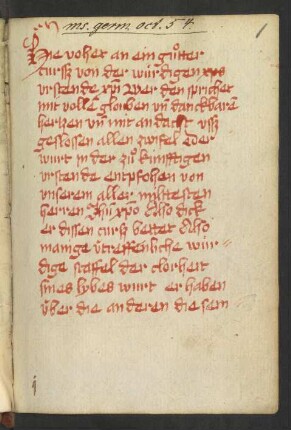 ms. germ. oct. 54.
1
Hie vohet an ein gůtter
cursz von der würdigen xps
urstende xp̄i wer den sprichet
mit volle glouben vn̄ danckbarē
hertzen vn̄ mit andacht usz
geslossen allen zwifel der
wurt in der zů kunfftigen
urstende entpfohen von
unserem aller miltesten
herren Jhū xpo Also dick
er dissen cursz bettet Also
mange útreffenliche wúr
dige staffel der clorheit
sines lybes wurt er haben
über die anderen die sein